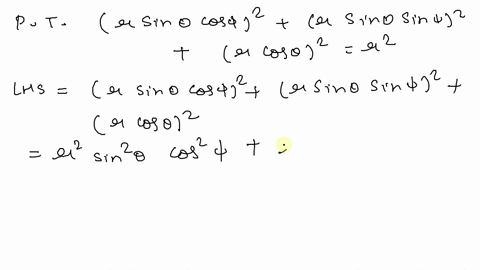 P.T. (r sinθ cosφ)² + (r sinθ sinφ)²
+ (r cosθ)² = r²
LHS = (r sinθ cosφ)² + (r sinθ sinφ)² +
(r cosθ)²
= r² sin²θ cos²φ +